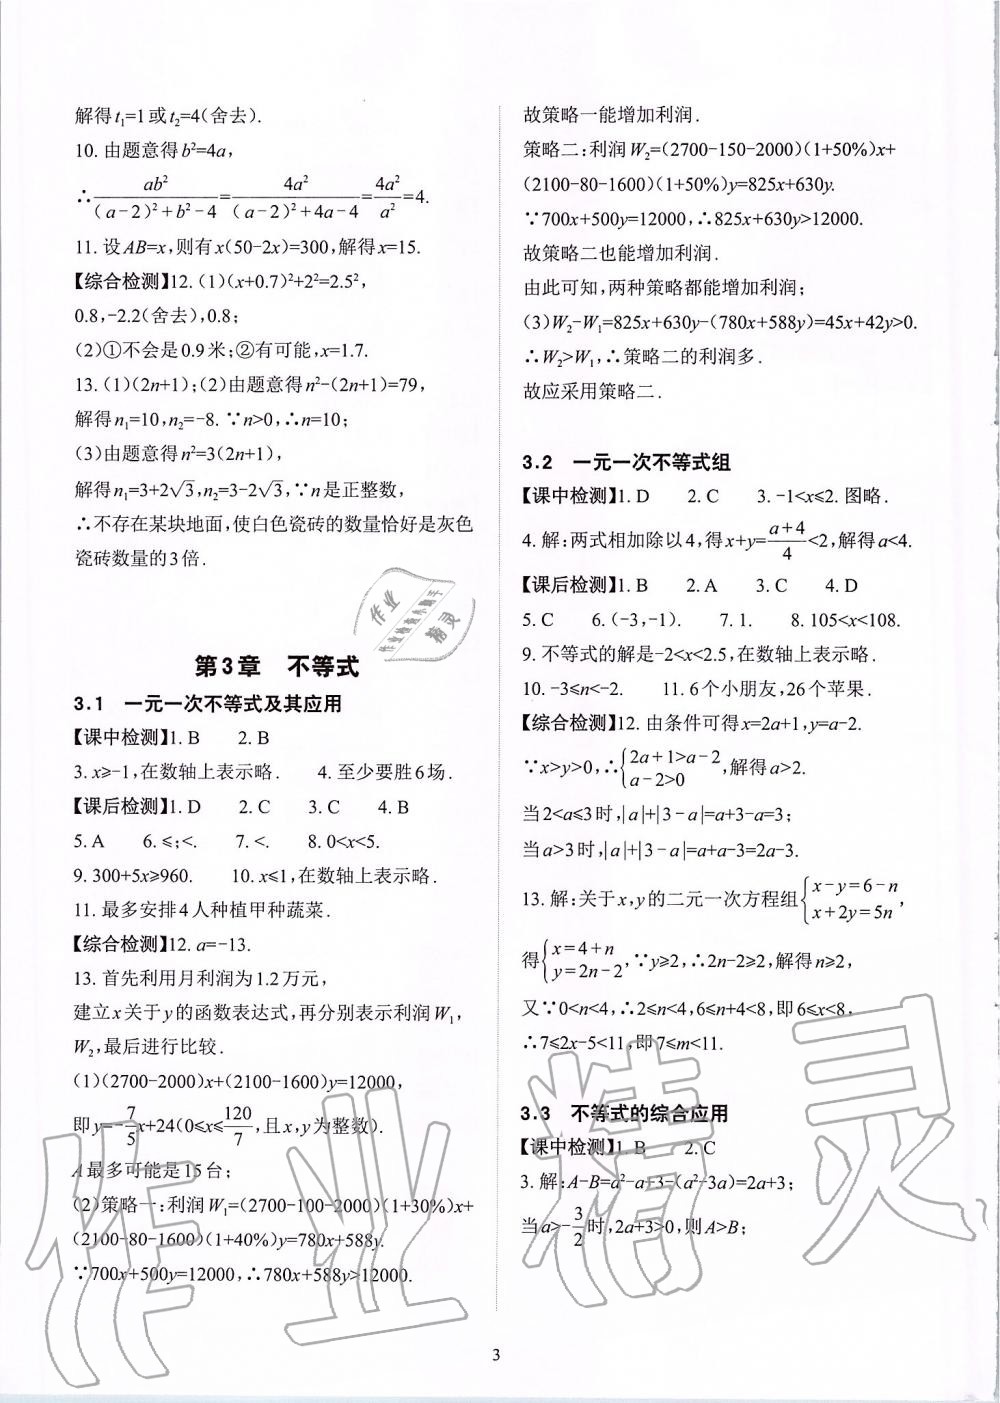 解得t₁=1或t₂=4(舍去).
10. 由题意得b²=4a,
∴ab²/((a-2)²+b²-4)=4a²/((a-2)²+4a-4)=4a²/a²=4.
11. 设AB=x,则有x(50-2x)=300,解得x=15.
【综合检测】12. (1)(x+0.7)²+2²=2.5²,
0.8,-2.2(舍去),0.8;
(2)①不会是0.9米;②有可能,x=1.7.
13. (1)(2n+1);(2)由题意得n²-(2n+1)=79,
解得n₁=10,n₂=-8. ∵n>0,∴n=10;
(3)由题意得n²=3(2n+1),
解得n₁=3+2√3,n₂=3-2√3,∵n是正整数,
∴不存在某块地面,使白色瓷砖的数量恰好是灰色
瓷砖数量的3倍.
第3章 不等式
3.1 一元一次不等式及其应用
【课中检测】1. B 2. B
3. x≥-1,在数轴上表示略. 4. 至少要胜6场.
【课后检测】1. D 2. C 3. C 4. B
5. A 6. ≤;<. 7. <. 8. 0<x<5.
9. 300+5x≥960. 10. x≤1,在数轴上表示略.
11. 最多安排4人种植甲种蔬菜.
【综合检测】12. a=-13.
13. 首先利用月利润为1.2万元,
建立x关于y的函数表达式,再分别表示利润W₁,
W₂,最后进行比较.
(1)(2700-2000)x+(2100-1600)y=12000,
即y=-7/5x+24(0≤x≤120/7,且x,y为整数).
A最多可能是15台;
(2)策略一:利润W₁=(2700-100-2000)(1+30%)x+
(2100-80-1600)(1+40%)y=780x+588y.
∵700x+500y=12000,∴780x+588y>12000.
故策略一能增加利润.
策略二:利润W₂=(2700-150-2000)(1+50%)x+
(2100-80-1600)(1+50%)y=825x+630y.
∵700x+500y=12000,∴825x+630y>12000.
故策略二也能增加利润.
由此可知,两种策略都能增加利润;
(3)W₂-W₁=825x+630y-(780x+588y)=45x+42y>0.
∴W₂>W₁,∴策略二的利润多.
故应采用策略二.
3.2 一元一次不等式组
【课中检测】1. D 2. C 3. -1<x≤2. 图略.
4. 解:两式相加除以4,得x+y=(a+4)/4<2,解得a<4.
【课后检测】1. B 2. A 3. C 4. D
5. C 6. (-3,-1). 7. 1. 8. 105<x<108.
9. 不等式的解是-2<x<2.5,在数轴上表示略.
10. -3≤n<-2. 11. 6个小朋友,26个苹果.
【综合检测】12. 由条件可得x=2a+1,y=a-2.
∵x>y>0,∴{2a+1>a-2
a-2>0,解得a>2.
当2<a≤3时,|a|+|3-a|=a+3-a=3;
当a>3时,|a|+|3-a|=a+a-3=2a-3.
13. 解:关于x,y的二元一次方程组{x-y=6-n
x+2y=5n,
得{x=4+n
y=2n-2,∵y≥2,∴2n-2≥2,解得n≥2,
又∵0<n<4,∴2≤n<4,6≤n+4<8,即6≤x<8,
∴7≤2x-5<11,即7≤m<11.
3.3 不等式的综合应用
【课中检测】1. B 2. C
3. 解:A-B=a²-a+3-(a²-3a)=2a+3;
当a>-3/2时,2a+3>0,则A>B;
3
作业
作业检查小助手
精灵
作业精灵